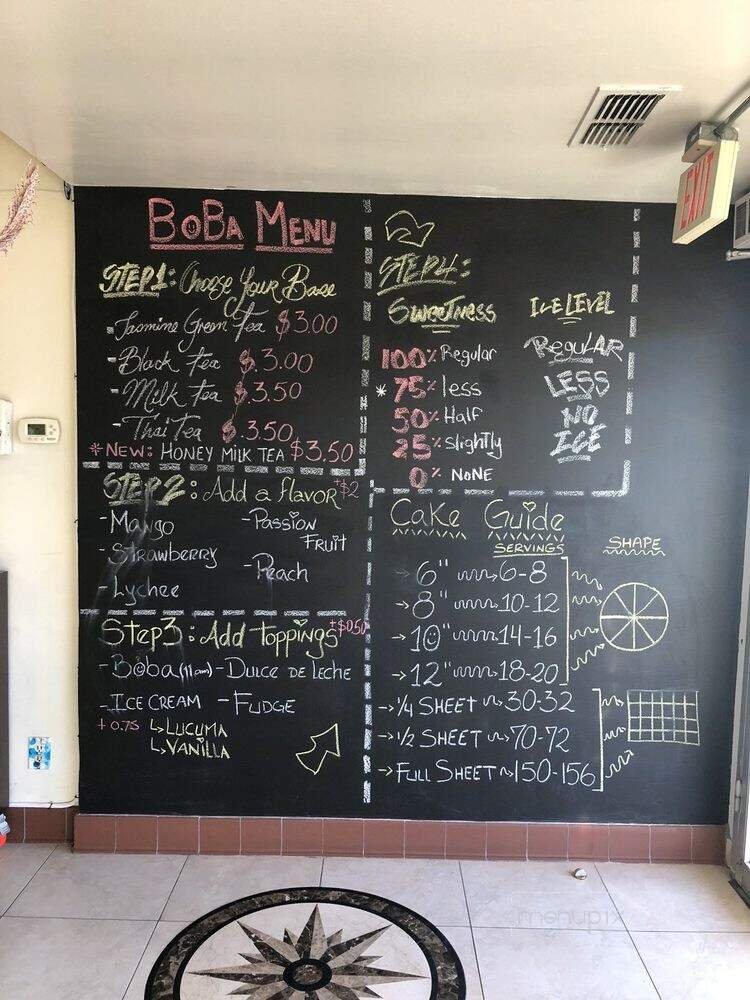 BOBA MENU
STEP 1: Choose Your Base
- Jasmine Green Tea $3.00
- Black Tea $3.00
- Milk Tea $3.50
- Thai Tea $.3.50
* NEW: HONEY MILK TEA $3.50
STEP 2: Add a flavor +$2
- Mango
- Strawberry
- Lychee
- Passion Fruit
- Peach
Step 3: Add Toppings +$0.50
- Boba (11am) - DULCE DE LECHE
- ICE CREAM - FUDGE
+0.75 LUCUMA
VANILLA
STEP 4:
SWEETNESS
100% Regular
* 75% less
50% Half
25% Slightly
0% NONE
ICE LEVEL
REGULAR
LESS
NO
ICE
Cake Guide
SERVINGS
6" 6-8
8" 10-12
10" 14-16
12" 18-20
1/4 SHEET 30-32
1/2 SHEET 70-72
FULL SHEET 150-156
SHAPE
EXIT
menupix